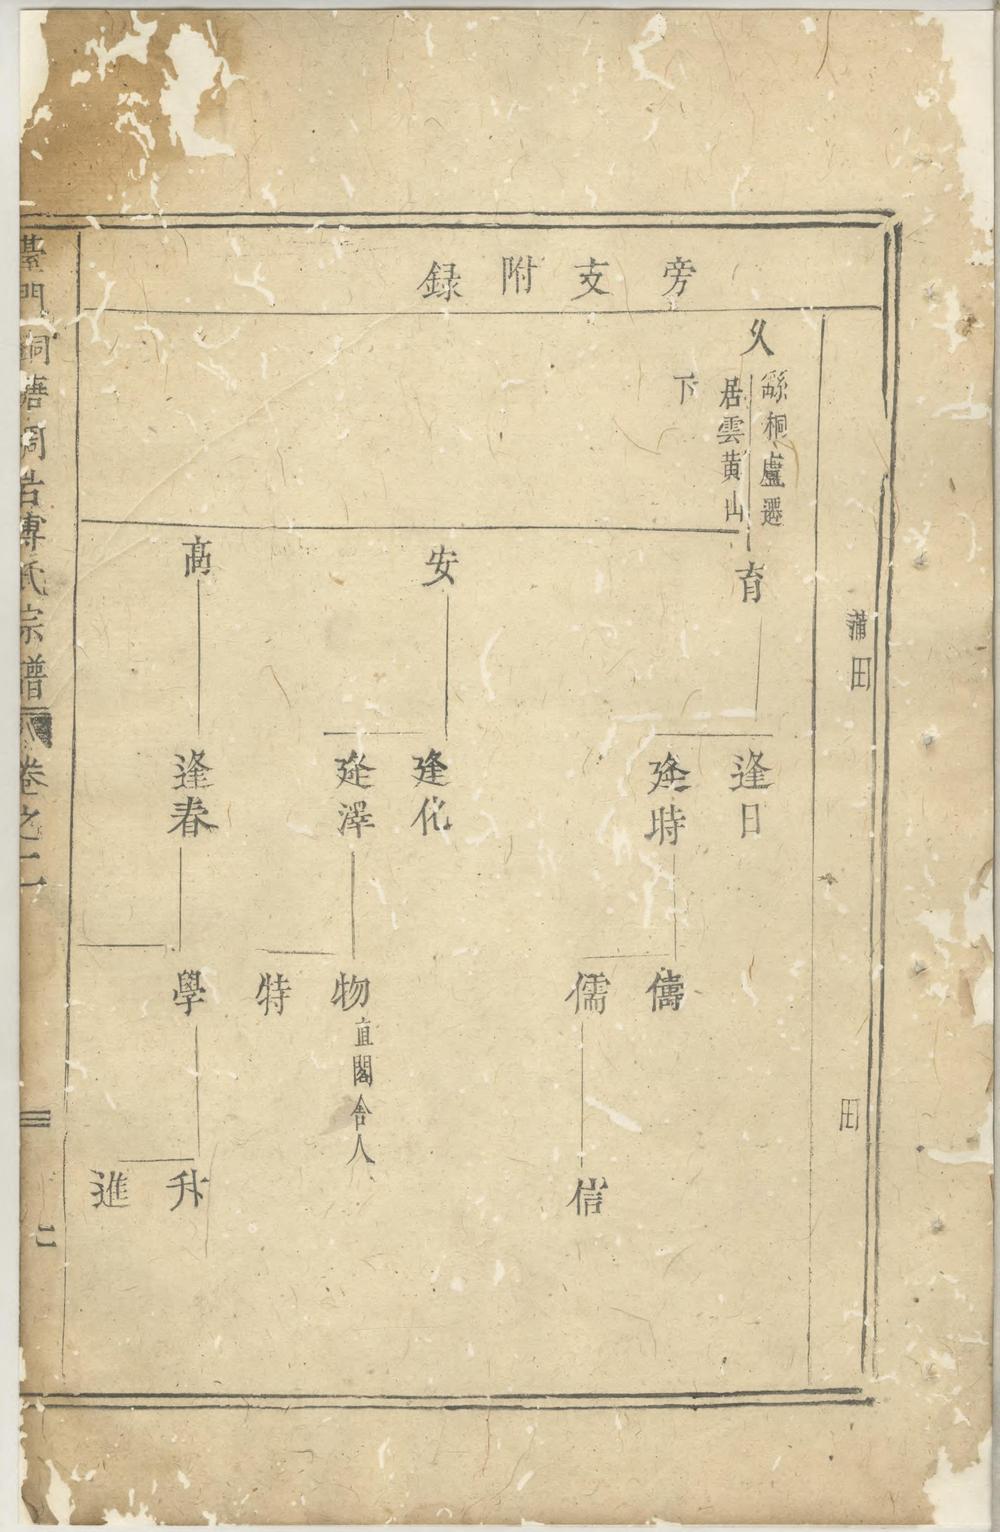 旁支附録
蒲田
田
久
繇桐廬遷
居雲黄山
下
育
安
高
逢日
逢時
逢化
逢澤
逢春
儔
儒
物
直閣舍人
特
學
信
升
進
傅氏宗譜
卷之二
二